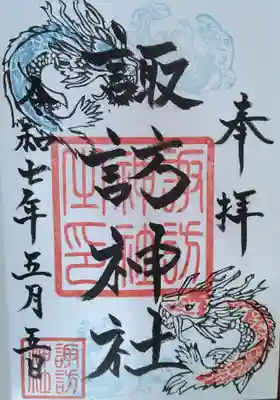 奉拝
諏訪神社
令和七年五月五日
諏訪神社之印
諏訪神社